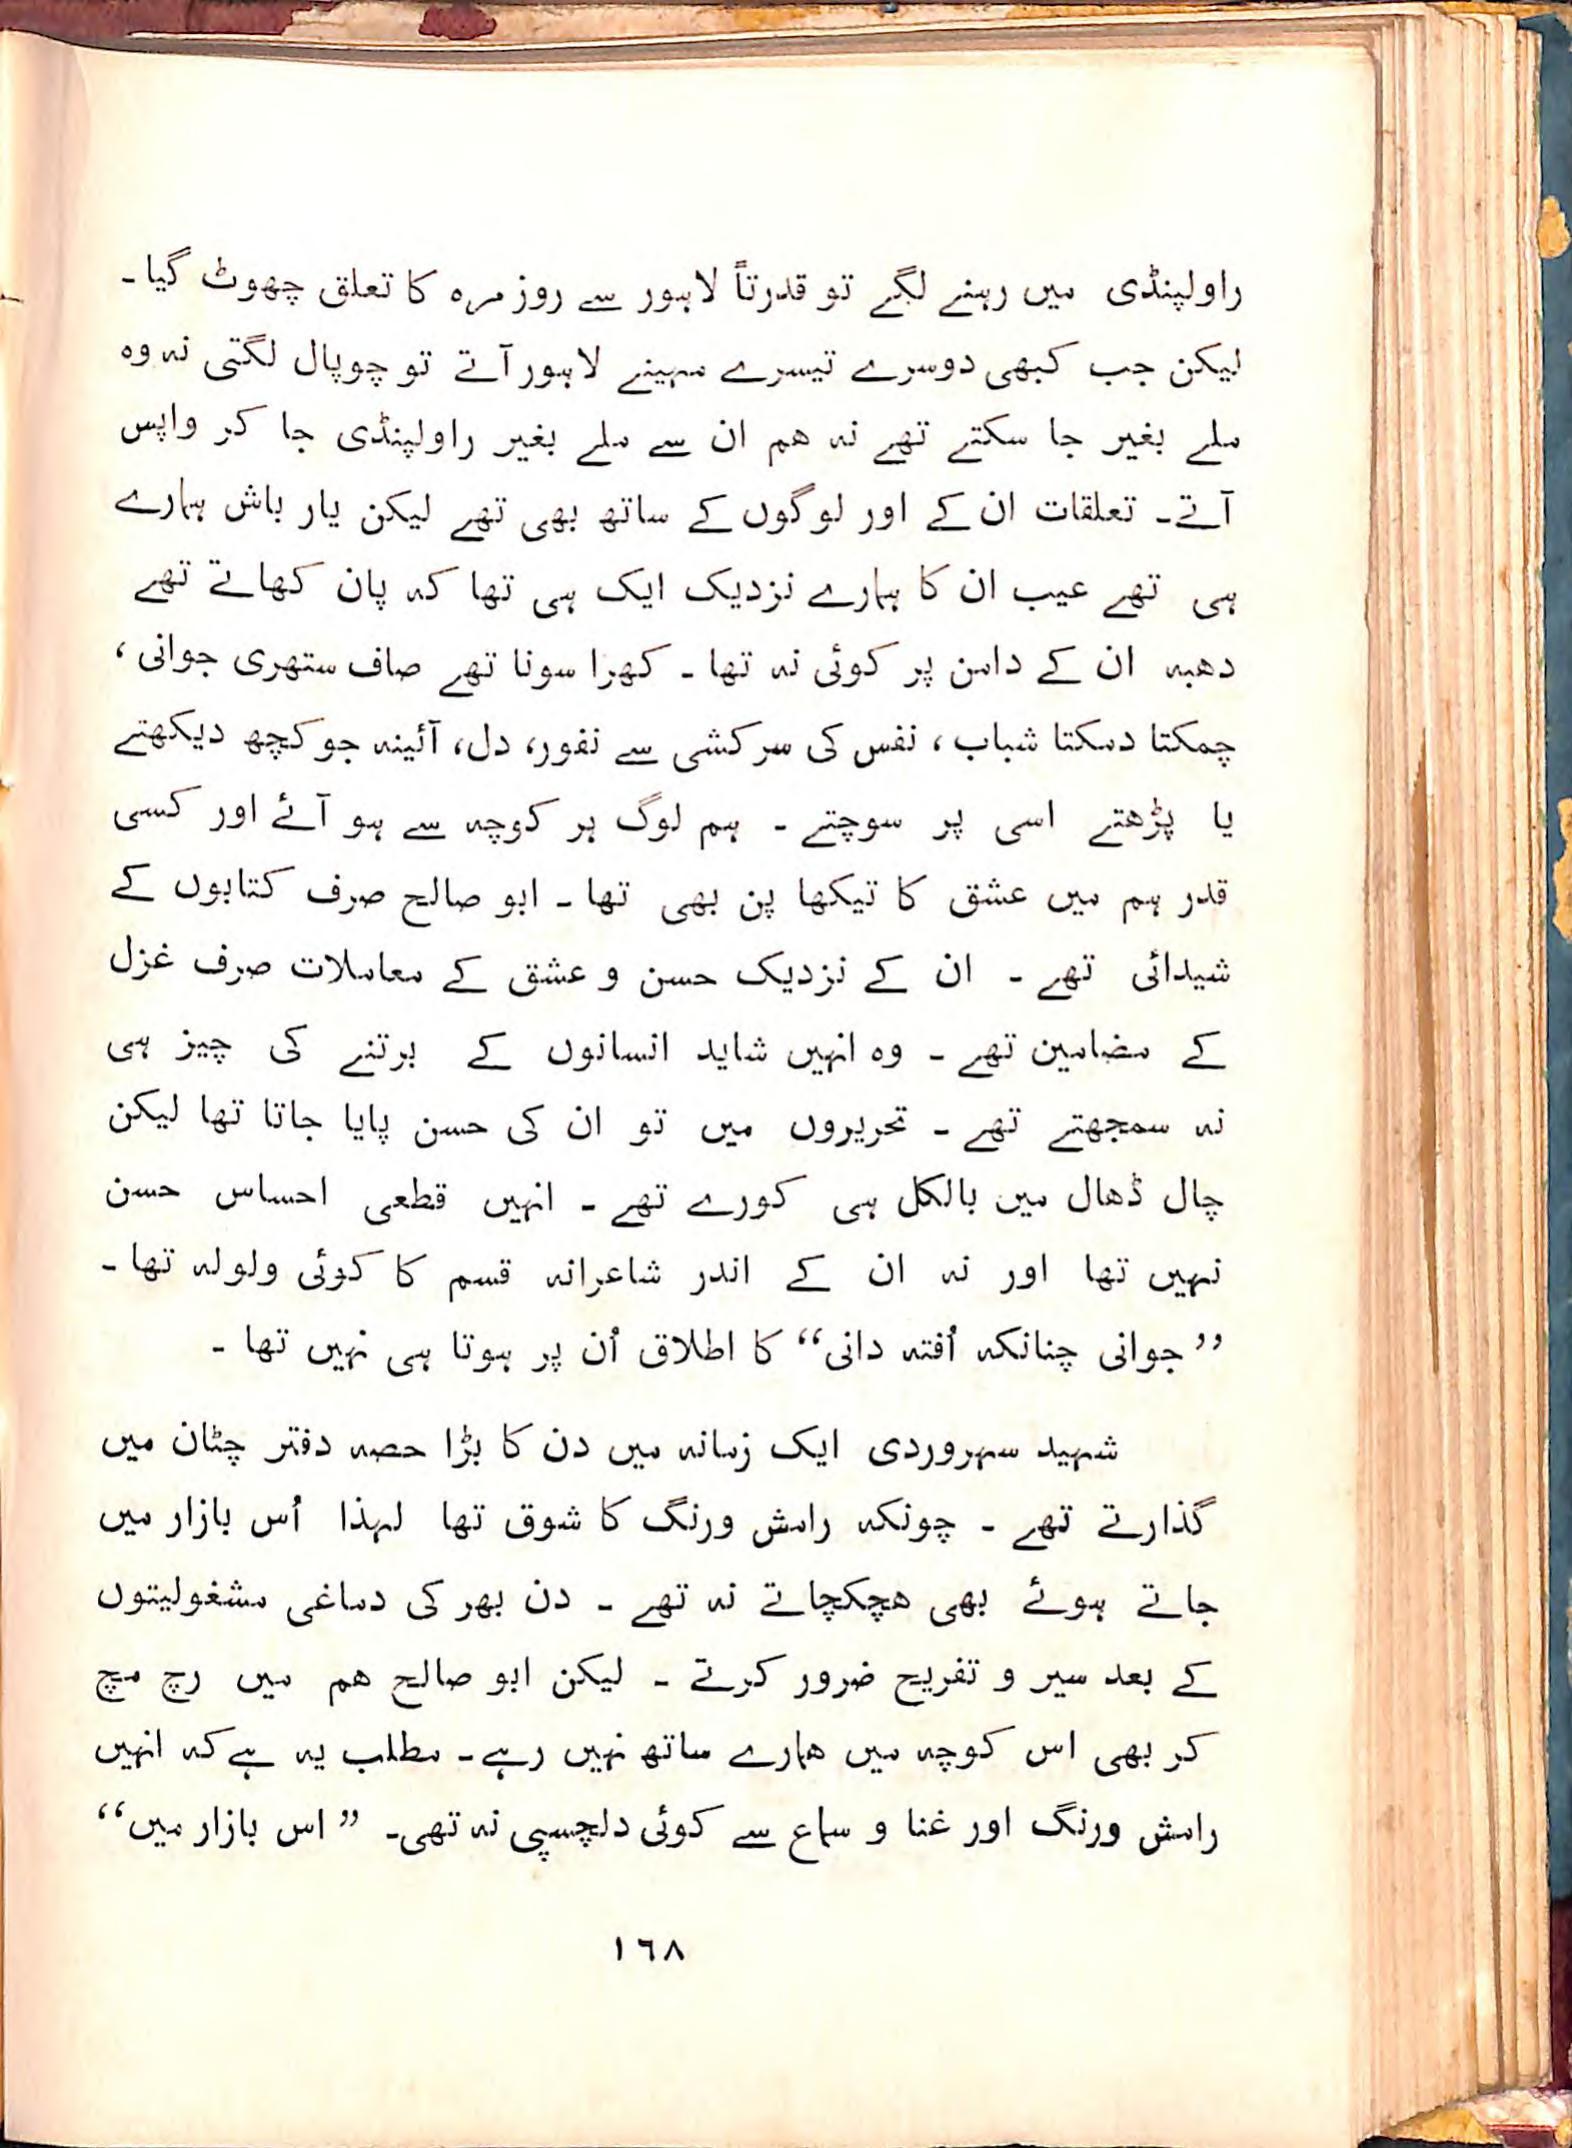 راولپنڈی میں رہنے لگے تو قدرتاً لاہور سے روز مرہ کا تعلق چھوٹ گیا۔
لیکن جب کبھی دوسرے تیسرے مہینے لاہور آتے تو چوپال لگتی نہ وہ
ملے بغیر جا سکتے تھے نہ ھم ان سے ملے بغیر راولپنڈی جا کر واپس
آتے۔ تعلقات ان کے اور لوگوں کے ساتھ بھی تھے لیکن یار باش ہمارے
ہی تھے عیب ان کا ہمارے نزدیک ایک ہی تھا کہ پان کھاتے تھے
دھبہ ان کے دامن پر کوئی نہ تھا ۔ کھرا سونا تھے صاف ستھری جوانی ،
چمکتا دمکتا شباب ، نفس کی سرکشی سے نفور، دل، آئینہ جو کچھ دیکھتے
یا پڑھتے اسی پر سوچتے ۔ ہم لوگ ہر کوچہ سے ہو آئے اور کسی
قدر ہم میں عشق کا تیکھا پن بھی تھا ۔ ابو صالح صرف کتابوں کے
شیدائی تھے ۔ ان کے نزدیک حسن و عشق کے معاملات صرف غزل
کے مضامین تھے ۔ وہ انہیں شاید انسانوں کے برتنے کی چیز ہی
نہ سمجھتے تھے ۔ تحریروں میں تو ان کی حسن پایا جاتا تھا لیکن
چال ڈھال میں بالکل ہی کورے تھے ۔ انہیں قطعی احساس حسن
نہیں تھا اور نہ ان کے اندر شاعرانہ قسم کا کوئی ولولہ تھا ۔
”جوانی چنانکہ اُفتہ دانی“ کا اطلاق اُن پر ہوتا ہی نہیں تھا ۔
شہید سہروردی ایک زمانہ میں دن کا بڑا حصہ دفتر چٹان میں
گذارتے تھے ۔ چونکہ رامش ورنگ کا شوق تھا لہذا اُس بازار میں
جاتے ہوئے بھی ھچکچاتے نہ تھے ۔ دن بھر کی دماغی مشغولیتوں
کے بعد سیر و تفریح ضرور کرتے ۔ لیکن ابو صالح ھم میں رچ مچ
کر بھی اس کوچہ میں ھمارے ساتھ نہیں رہے۔ مطلب یہ ہے کہ انہیں
رامش ورنگ اور غنا و سماع سے کوئی دلچسپی نہ تھی۔ ”اس بازار میں“
١٦٨